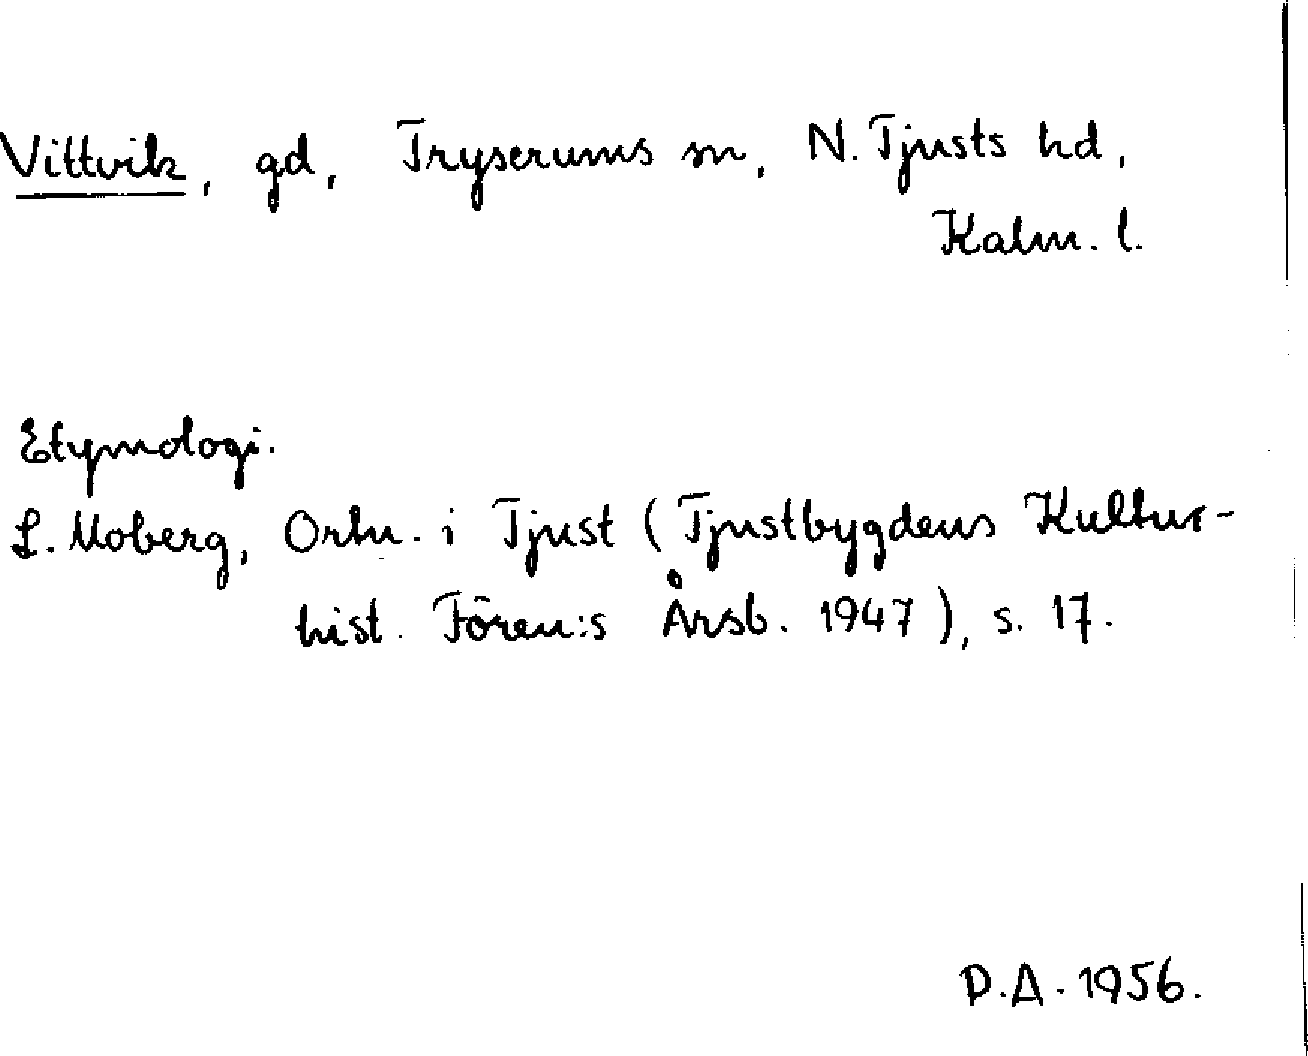 Vittvik, gd, Tryserums sn, N. Tjusts hd,
Kalm. l.
Etymologi.
L. Moberg, Ortn. i Tjust (Tjustbygdens Kultur-
hist. Fören:s Årsb. 1947), s. 17.
D.A. 1956.